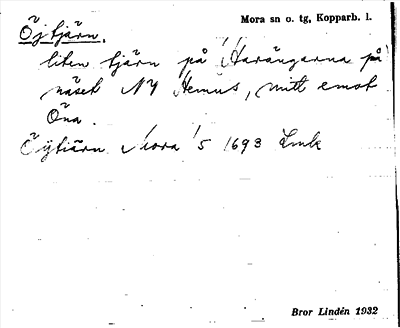 Öjtjärn.
Mora sn o. tg, Kopparb. l.
liten tjärn på Harängarna på
näset NV Hemus, mitt emot
Öna.
Öijtiärn Mora 1/5 1693 Lmk
Bror Lindén 1932